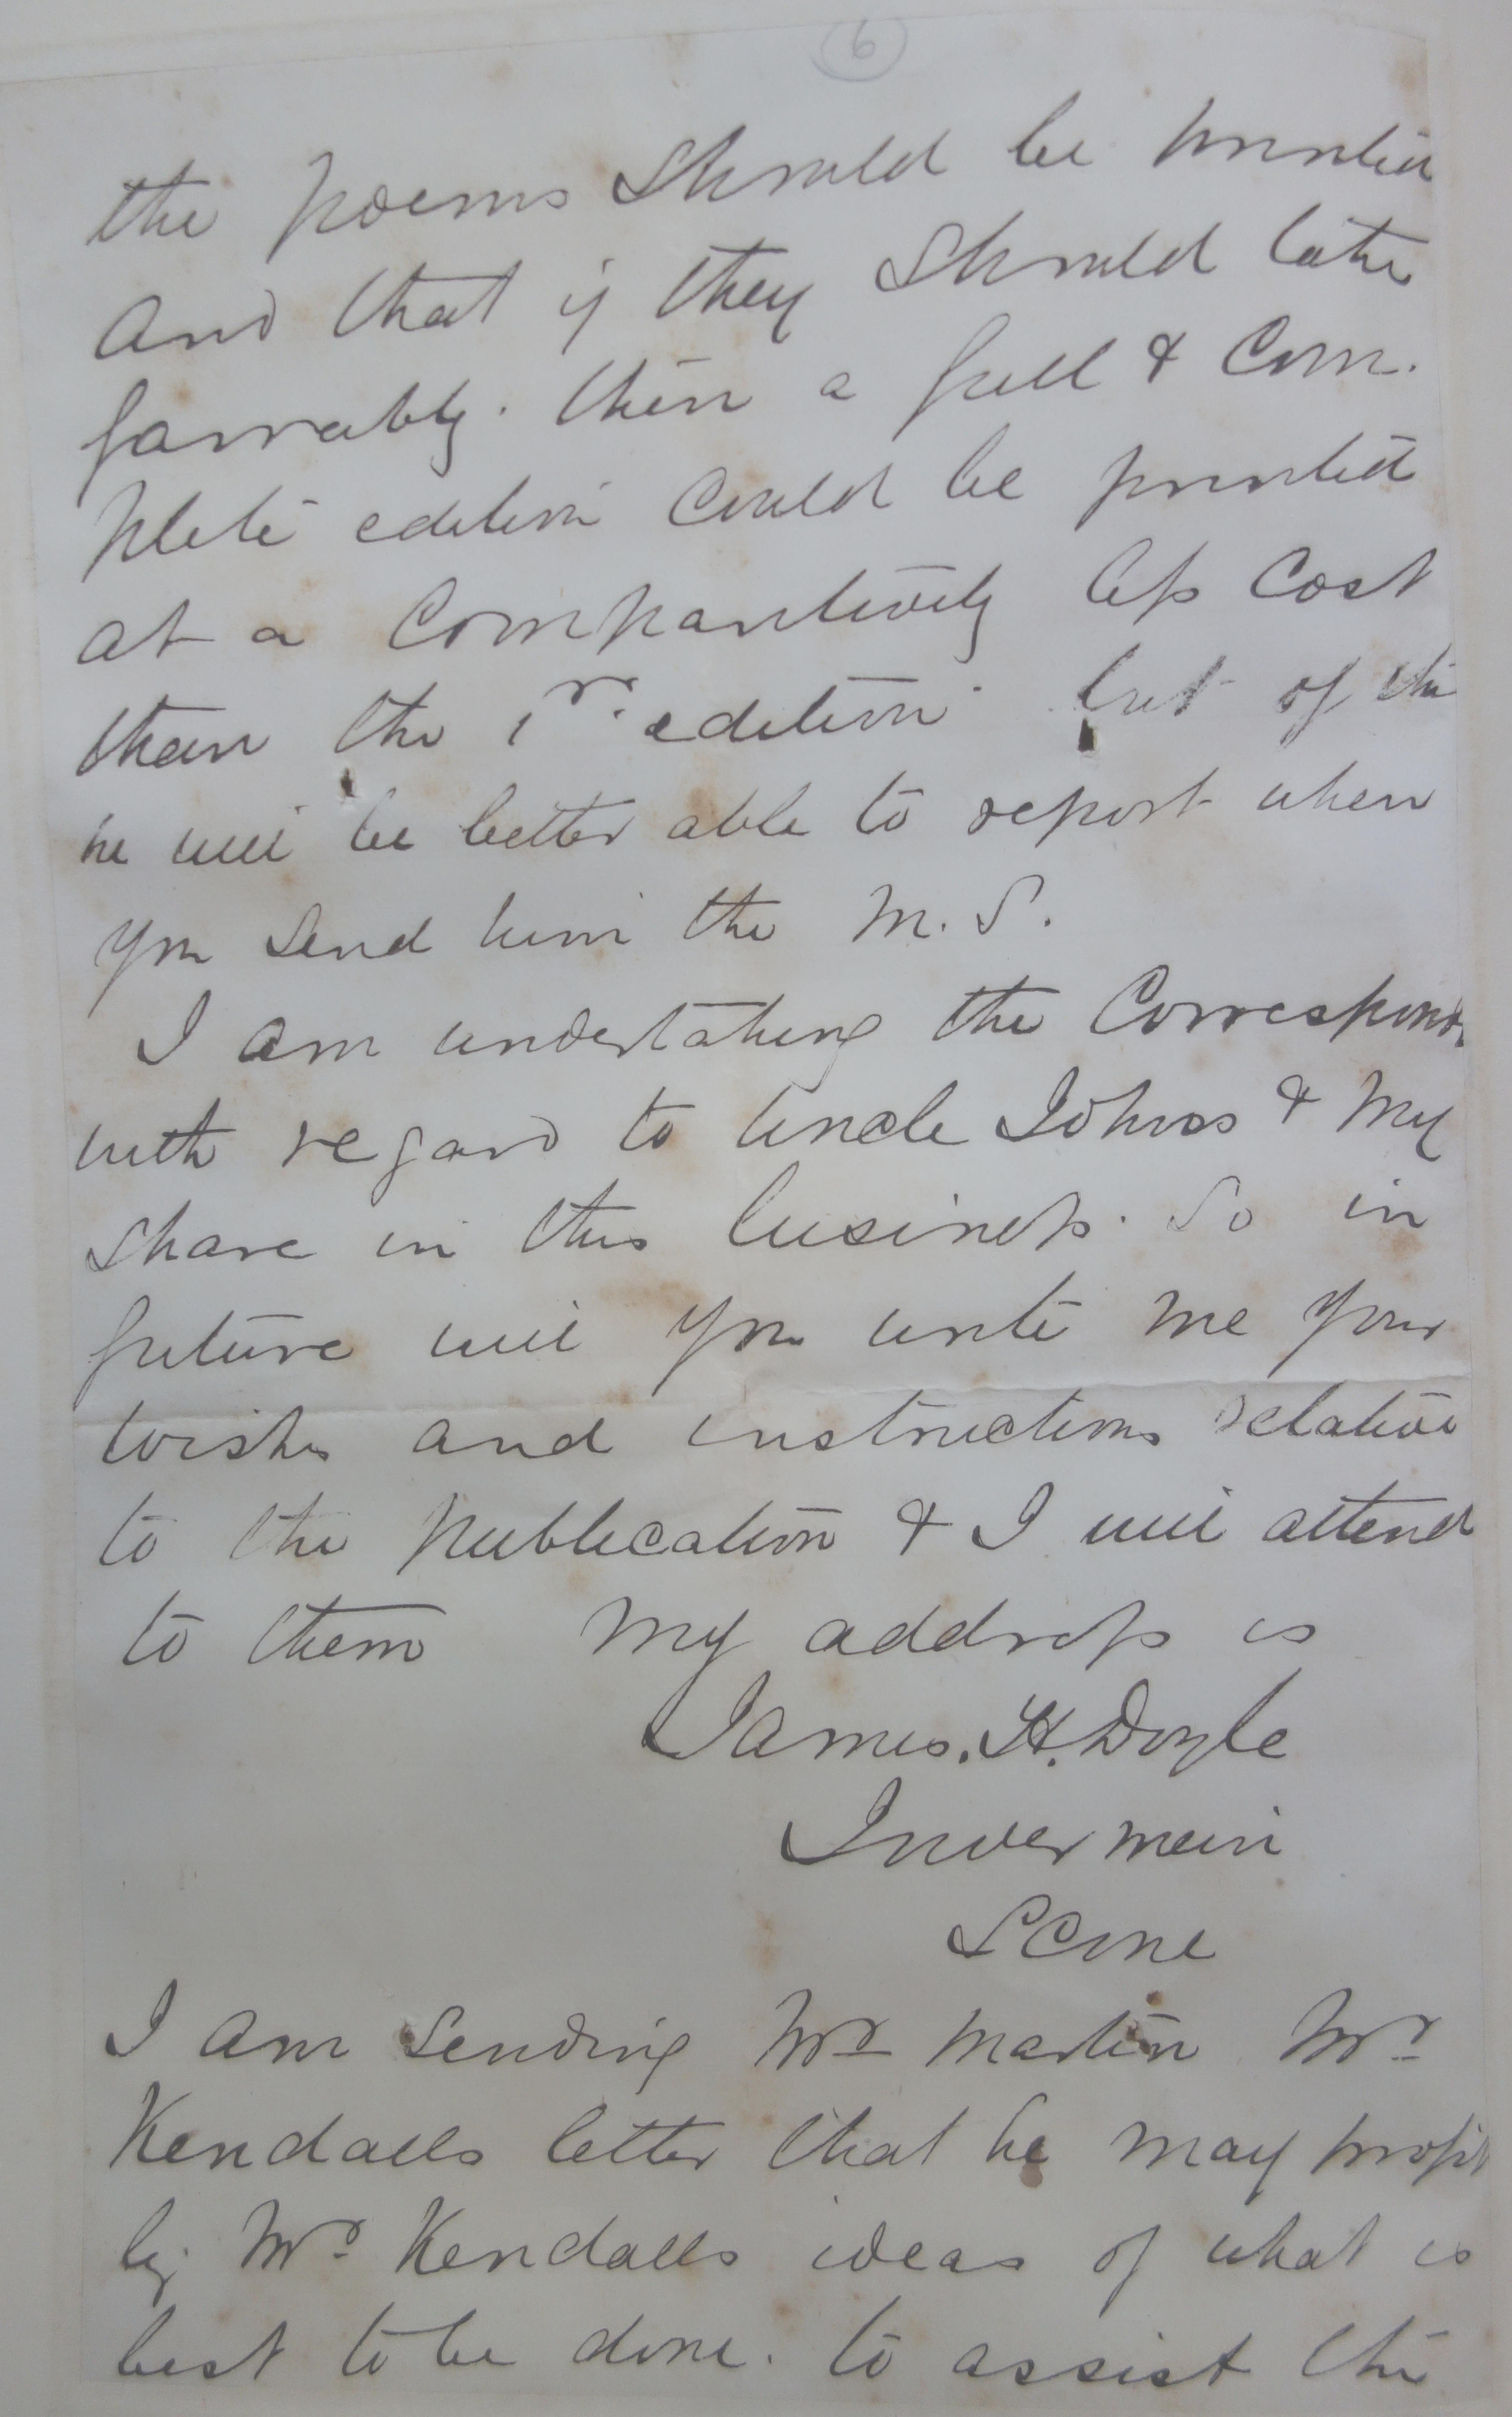 6
the poems should be printed
And that if they should take
favorably. then a full & Com.
plete edition could be printed
at a Comparitively less Cost
than the 1st edition but of this
he will be better able to report when
you send him the M.S.
I am undertaking the Correspond.
with regard to Uncle Johns & my
share in this business. So in
future will you write me your
wishes and instructions relative
to the publication & I will attend
to them My address is
James. H. Doyle
Invermein
Scone
I am sending Mr Martin Mr
Kendalls letter that he may profit
by Mr Kendalls ideas of what is
best to be done. to assist the